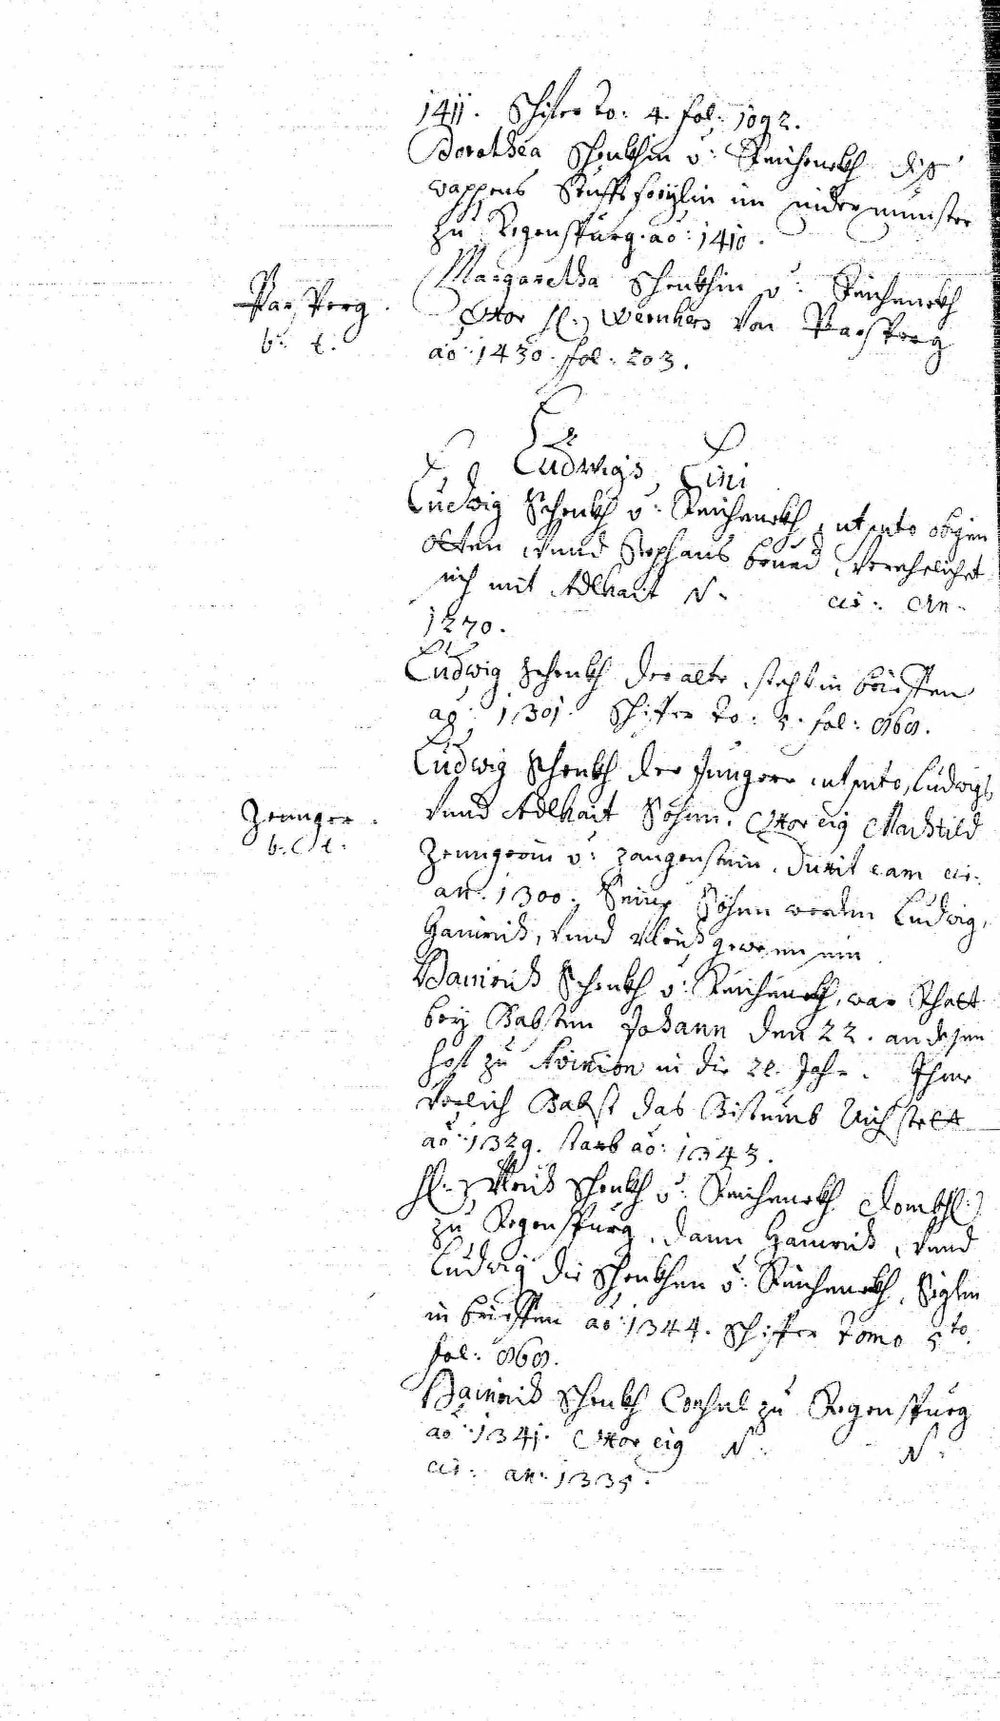 1411. Schifer to: 4. fol: 1092.
Dorothea Schenkhin v: Reichenekh diß
wappens Stifftsfreylin im nidermünster
zu Regenspurg. ao: 1410.
Parsperg.
b: t.
Margaretha Schenkhin v: Reichenekh
Vxor H: Wernhers von Parsperg
ao: 1430. fol: 203.
Ludwigs Lini
Ludwig Schenkh v: Reichenekh, ut supra obigen
Otten vnnd Stephans brued, verehelichet
sich mit Adlhait N. cir: an.
1270.
Ludwig Schenkh der alte, steht in brieffen
ao: 1301. Schifer to: 5. fol: 868.
Zennger.
b. C. t:
Ludwig Schenkh der Jungere, ut supra, Ludwigs
vnnd Adlhait Sohnn. Vxor eig Machtild
Zenngerin v: Zangenstein. Duxit eam cir:
an: 1300. Seine Söhne werden Ludwig,
Hainrich, vnnd Vlrich gewesen sein
Hainrich Schenkh v: Reichenekh, war
bey Babsten Johann dem 22. an dessen
hoff zu Avinion in die 22. Jahr. Ihme
verlich Babst das Bistumb Aichstett
ao: 1329. starb ao: 1343.
H: Vlrich Schenkh v: Reichenekh Dombh:
zu Regenspurg, dann Hainrich, vnnd
Ludwig die Schenkhen v: Reichenekh, Siglen
in brieffen ao: 1344. Schifer Tomo 5to.
fol: 868.
Hainrich Schenkh Consul zu Regenspurg
ao: 1341. Vxor eig N: N:
cir: an: 1335.